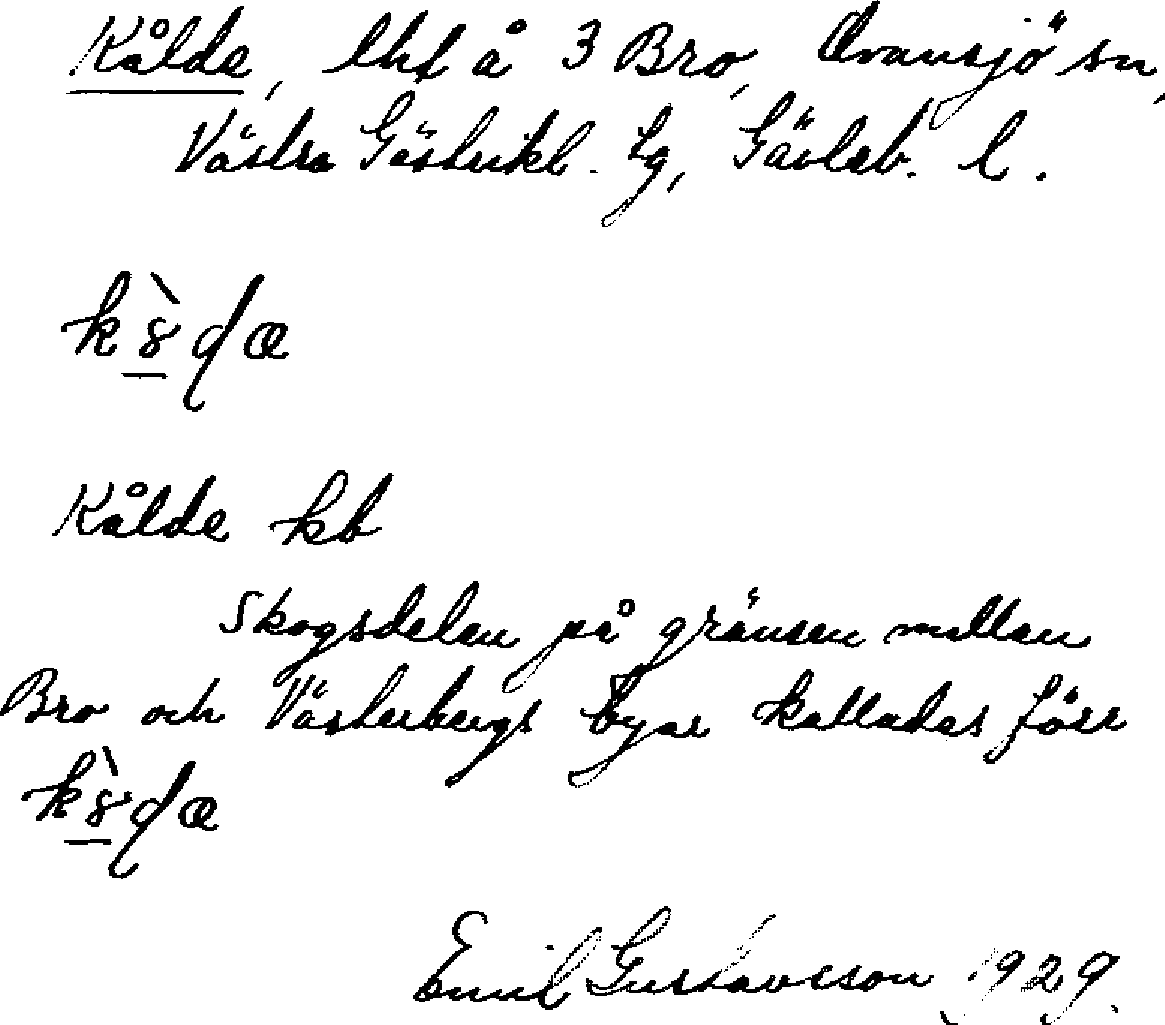 Kålde, lht å 3 Bro, Ovansjö sn,
Västra Gästrikl. tg, Gävleb. l.
Kålde kb
Skogsdelen på gränsen mellan
Bro och Västerbergs byar kallades förr
Emil Gustavsson 1929.